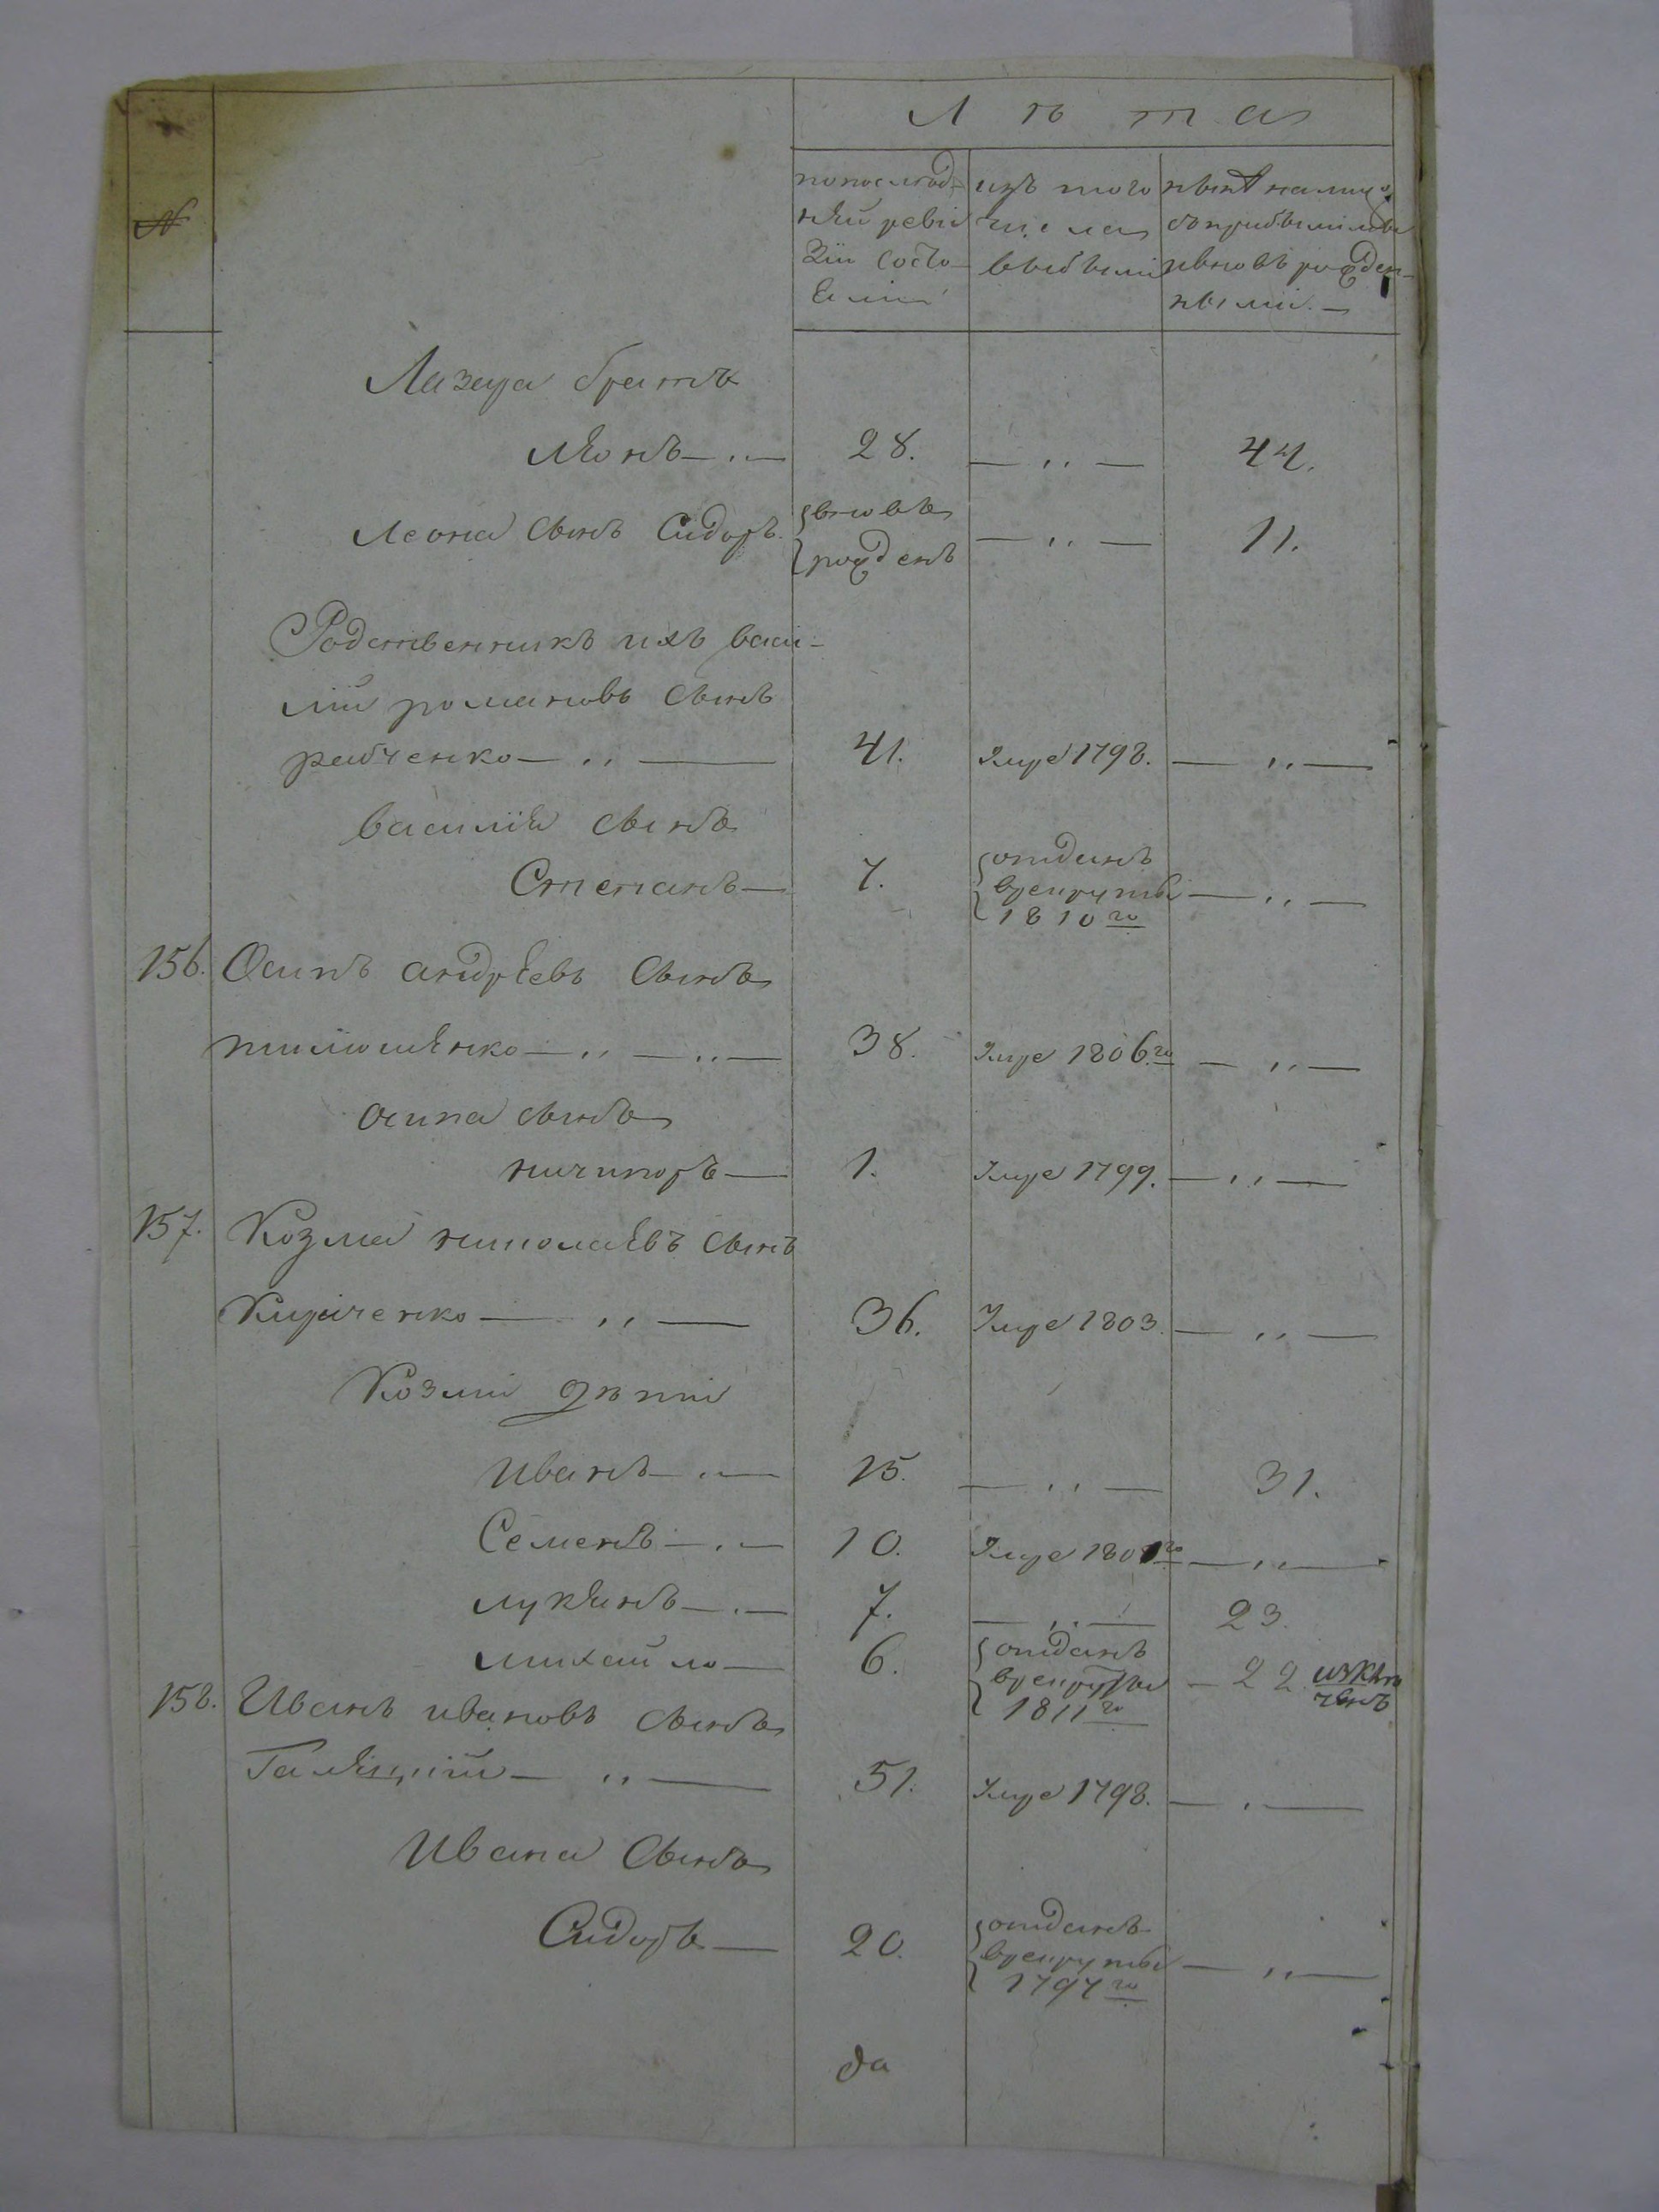 №
Лѣта
попослѣд-
нѣй реви
зіи состо-
яли
изъ того
числа
выбыли
нынѣ налицо
съприбылыми
ивновь рожден-
ными. —
Лазара братъ
Леонъ — „ — 28. — „ — 44.
Леона сынъ Сидоръ. вновь
рожденъ — „ — 11.
Родственникъ ихъ васи-
лій романовъ сынъ
рабченко — „ — 41. Умре 1798. — „ —
василія сынъ
Степанъ — 7. отданъ
врекруты — „ —
1810го
156. Осипъ андрѣевъ сынъ
— „ — „ — 38. Умре 1806.го — „ —
осипа сынъ
ничипоръ — 1. Умре 1799. — „ —
157. Козма николаевъ сынъ
Кириченко — „ — 36. Умре 1803. — „ —
Козмы дѣти
Иванъ — „ — 15. — „ — 31.
Семенъ — „ — 10. Умре 1801го — „ —
лукянъ — „ — 7. — „ — 23.
михайло — 6. отданъ
врекруты — 22.
1811го
158. Иванъ ивановъ сынъ
— „ — 51. Умре 1798. — „ —
Ивана сынъ
Сидоръ — 20. отданъ
врекруты — „ —
1797го
да